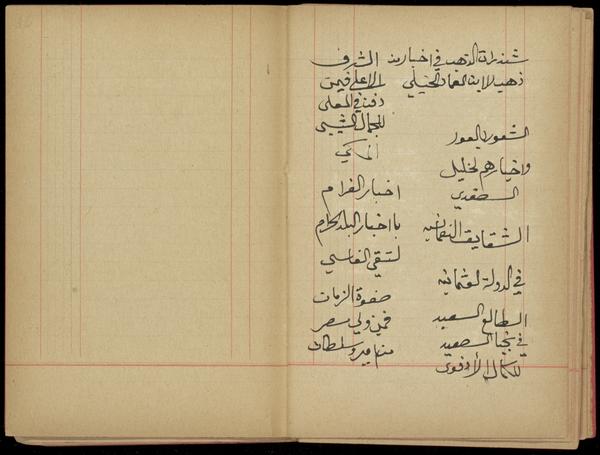 شذرات الذهب في اخبار من
ذهب لابن العماد الحنبلي
الشعور بالعور
واخبارهم لخليل
الصفدي
الشقايق النعمانيه
في الدولة العثمانيه
الطالع السعيد
في نجبا الصعيد
للكمال الأدفوى
الشرف
الاعلى فيمن
دفن في المعلى
للجمال الشيبي
المكي
اخبار الغرام
با اخبار البلد الحرام
لتقي الفاسي
صفوة الزمان
فمن ولي مصر
من امير وسلطان